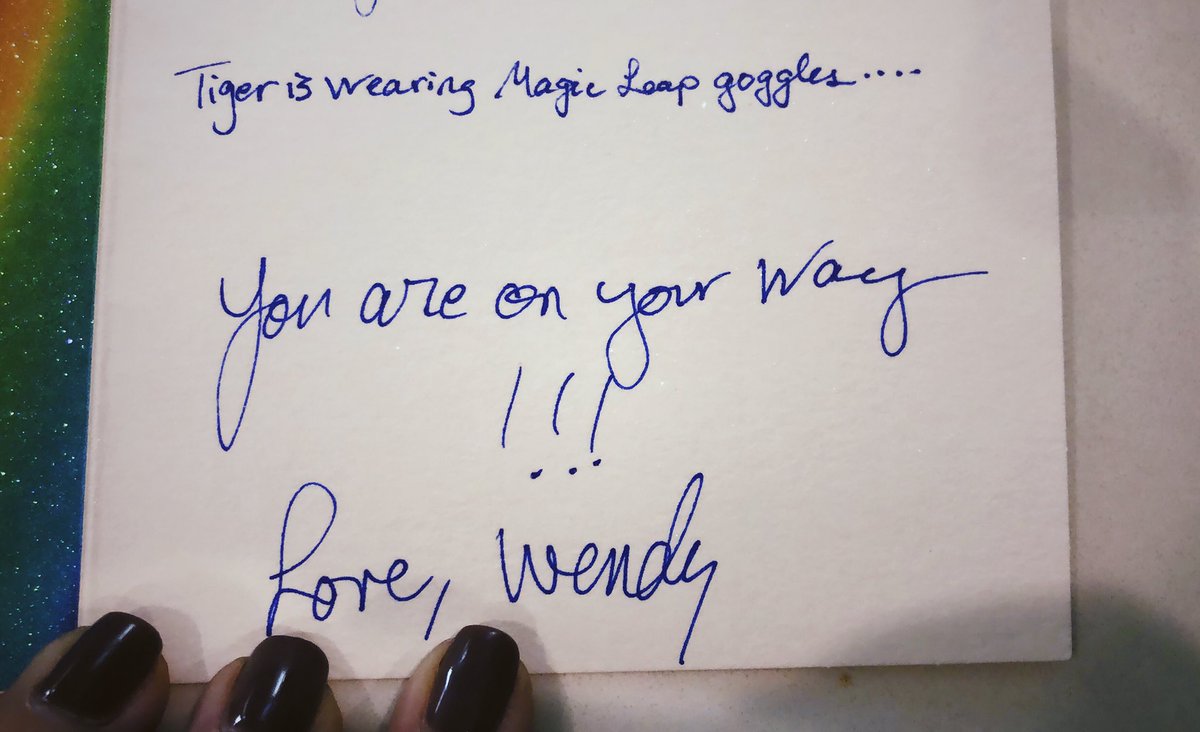 Tiger is wearing Magic Leap goggles....
You are on your way
!!!
Love, Wendy